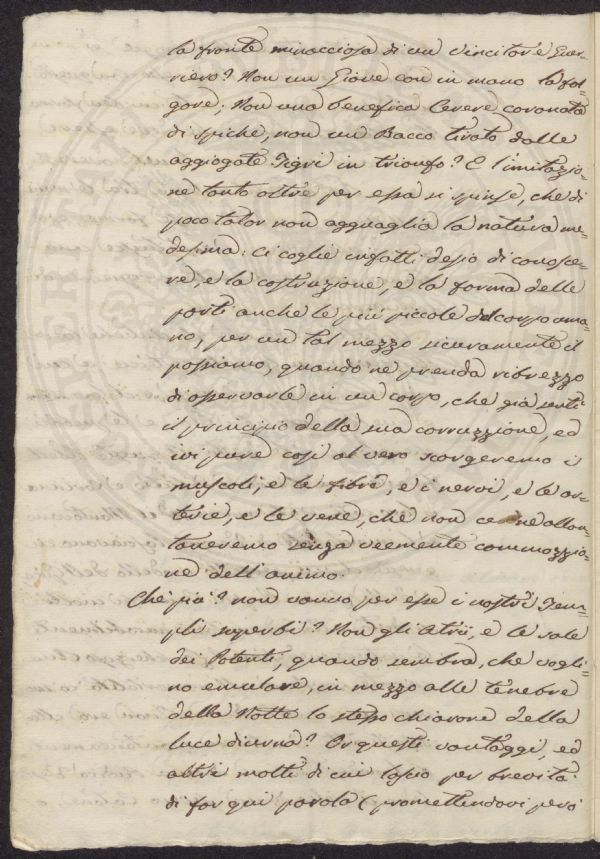 la fronte minacciosa di un vincitore Guer-
riero? Non un Giove con in mano la fol-
gore; Non una benefica Cerere coronata
di spiche, non un Bacco tirato dalle
aggiogate Tigri in trionfo? E l'imitazio-
ne tanto oltre per essa si spinse, che di
poco talor non agguaglia la natura me-
desima: ci coglie infatti desio di conosce-
re, e la costruzione, e la forma delle
parti anche le più piccole del corpo uma-
no, per un tal mezzo sicuramente il
possiamo, quando ne prenda ribrezzo
di osservarle in un corpo, che già sentì
il principio della sua corruzzione, ed
ivi pure così al vero scorgeremo i
muscoli, e le fibre, e i nervi, e le ar-
terie, e le vene, che non ce ne allon-
taneremo senza veemente commozzio-
ne dell'animo.
Che più? non vanno per esse i nostri Tem-
pli superbi? Non gli Atrii, e le sale
dei Potenti, quando sembra, che vogli-
no emulare, in mezzo alle tenebre
della Notte lo stesso chiarore della
luce diurna? Or questi vantaggi, ed
altri molti di cui lascio per brevità
di far qui parola (promettendovi però